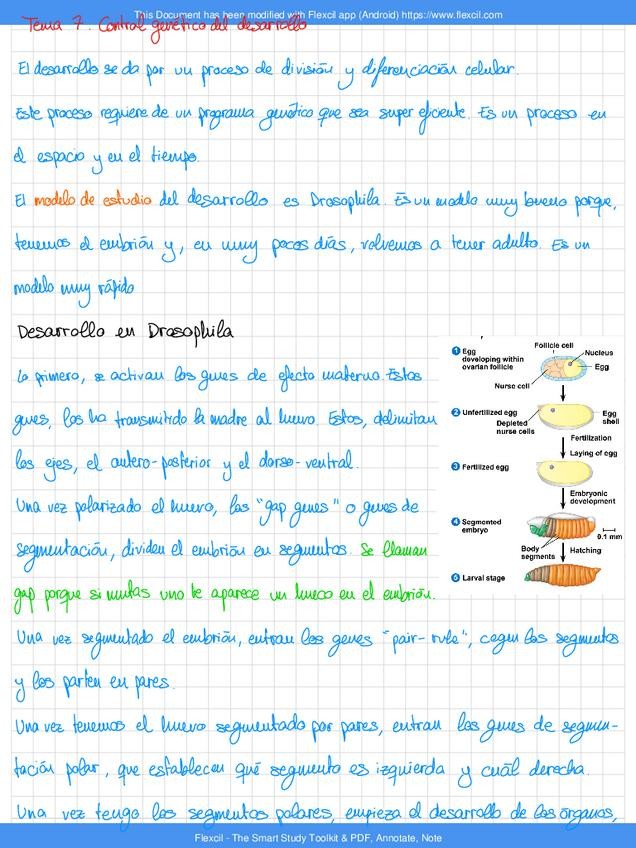 This Document has been modified with Flexcil app (Android) https://www.flexcil.com
Tema 7. Control genético del desarrollo
El desarrollo se da por un proceso de división y diferenciación celular.
Este proceso requiere de un programa genético que sea super eficiente. Es un proceso en
el espacio y en el tiempo.
El modelo de estudio del desarrollo es Drosophila. Es un modelo muy bueno porque,
tenemos el embrión y, en muy pocos días, volvemos a tener adulto. Es un
modelo muy rápido
Desarrollo en Drosophila
Lo primero, se activan los genes de efecto materno. Estos
genes, los ha transmitido la madre al huevo. Estos, delimitan
los ejes, el antero-posterior y el dorso-ventral.
Una vez polarizado el huevo, los "gap genes" o genes de
segmentación, dividen el embrión en segmentos. Se llaman
gap porque si mutas uno te aparece un hueco en el embrión.
Una vez segmentado el embrión, entran los genes "pair-rule", cogen los segmentos
y los parten en pares.
Una vez tenemos el huevo segmentado por pares, entran los genes de segmen-
tación polar, que establecen qué segmento es izquierda y cuál derecha.
Una vez tengo los segmentos polares, empieza el desarrollo de los órganos,
1 Egg
developing within
ovarian follicle
Follicle cell
Nucleus
Egg
Nurse cell
2 Unfertilized egg
Depleted
nurse cells
Egg
shell
Fertilization
Laying of egg
3 Fertilized egg
Embryonic
development
4 Segmented
embryo
0.1 mm
Body
segments
Hatching
5 Larval stage
Flexcil - The Smart Study Toolkit & PDF, Annotate, Note